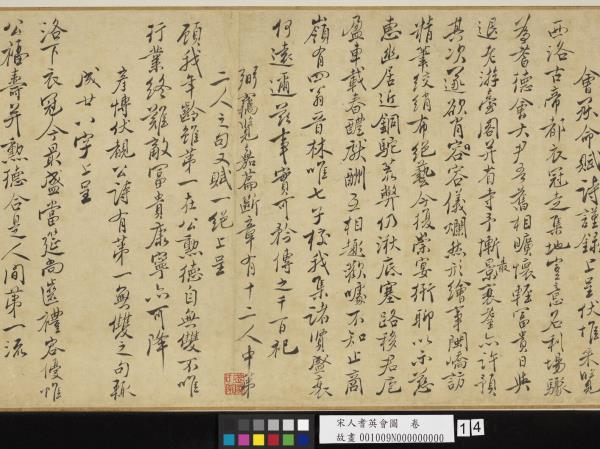 會飲命賦詩謹錄上呈伏惟采覽
西洛古帝都衣冠走集地豈意名利場驟
為耆德會大尹吾舊相曠懷輕富貴日與
退老游臺閣并省寺予慚最衰老亦許預
其次遂欲肖容容儀爛然於繪事閩嶠訪
精筆絞綃布絕藝今複崇宴衎聊以示慈
惠幽居近銅駝荒弊仍湫底塞路移君庖
盈車載春醴獻酬互相趣歡噱不知止商
嶺有四翁晉林唯七子較我集諸賢盛衰
何遠邇茲事實可矜傳之千百祀
弼竊覽嘉篇斷章有十二人中第
二人之句又賦一絕上呈
顧我年齡雖第一在公勳德自無雙不唯
行業終難敵富貴康寧亦可降
彥博伏覩公詩有第一無雙之句輒
成廿八字上呈
洛下衣冠今最盛當筵尚齒禮容優惟
公福壽并勳德合是人間第一流
宋人耆英會圖 卷
故畫 001009N000000000
14